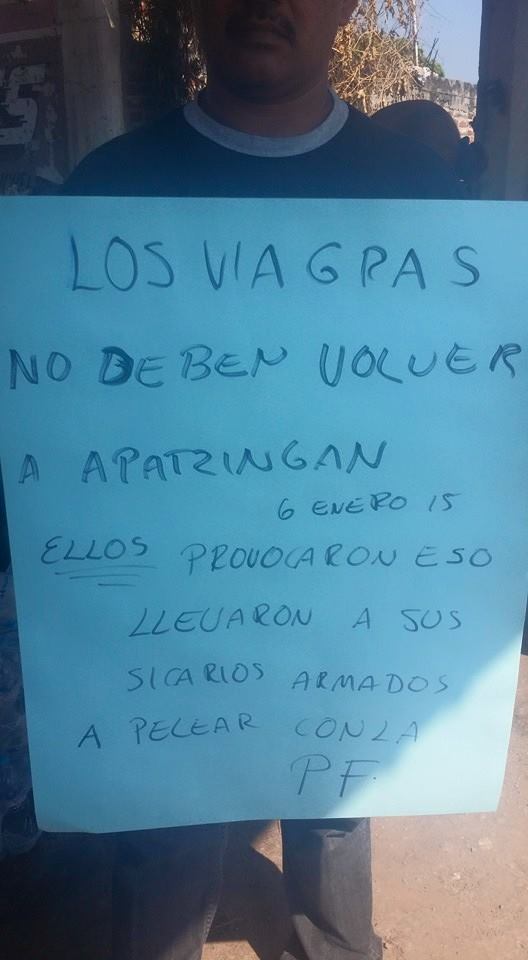 LOS VIAGRAS
NO DEBEN VOLVER
A APATZINGAN
6 ENERO 15
ELLOS PROVOCARON ESO
LLEVARON A SUS
SICARIOS ARMADOS
A PELEAR CON LA
PF.